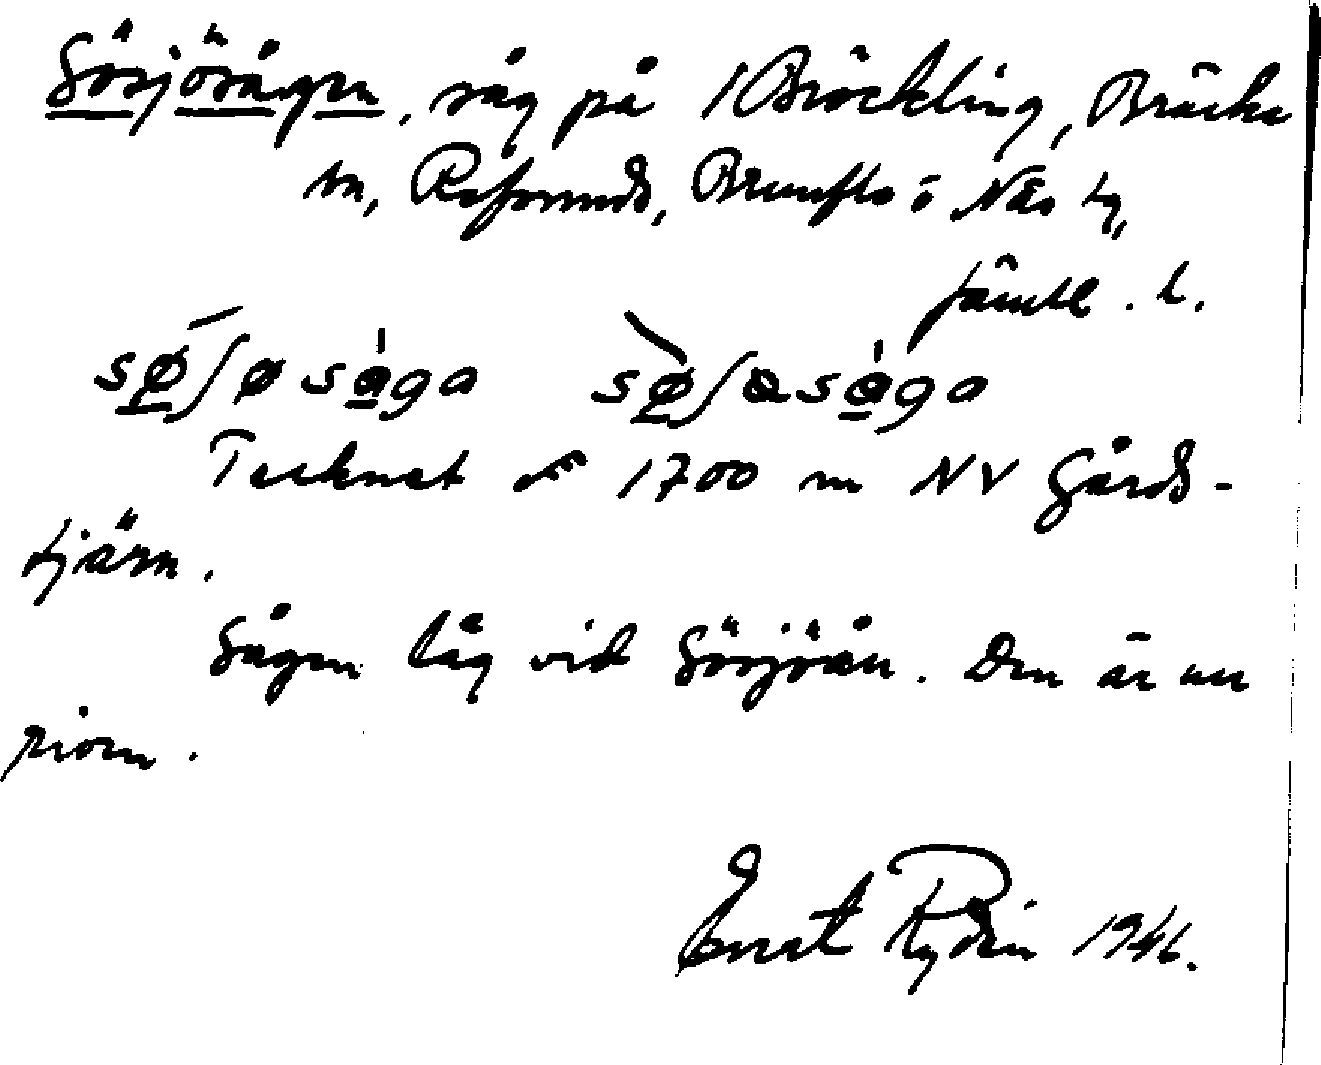 Sösjösågen, såg på 1 Bröckling, Bräcke
sn, Refsunds, Brunflo o Näs tg,
Jämtl. l.
sø̱ʃøså̱ga sø̱ʃəså̱ga
Tecknet 1700 m NV Gårds-
tjärn.
Sågen låg vid Sösjöån. Den är nu
riven.
Ernst Rydin 1946.